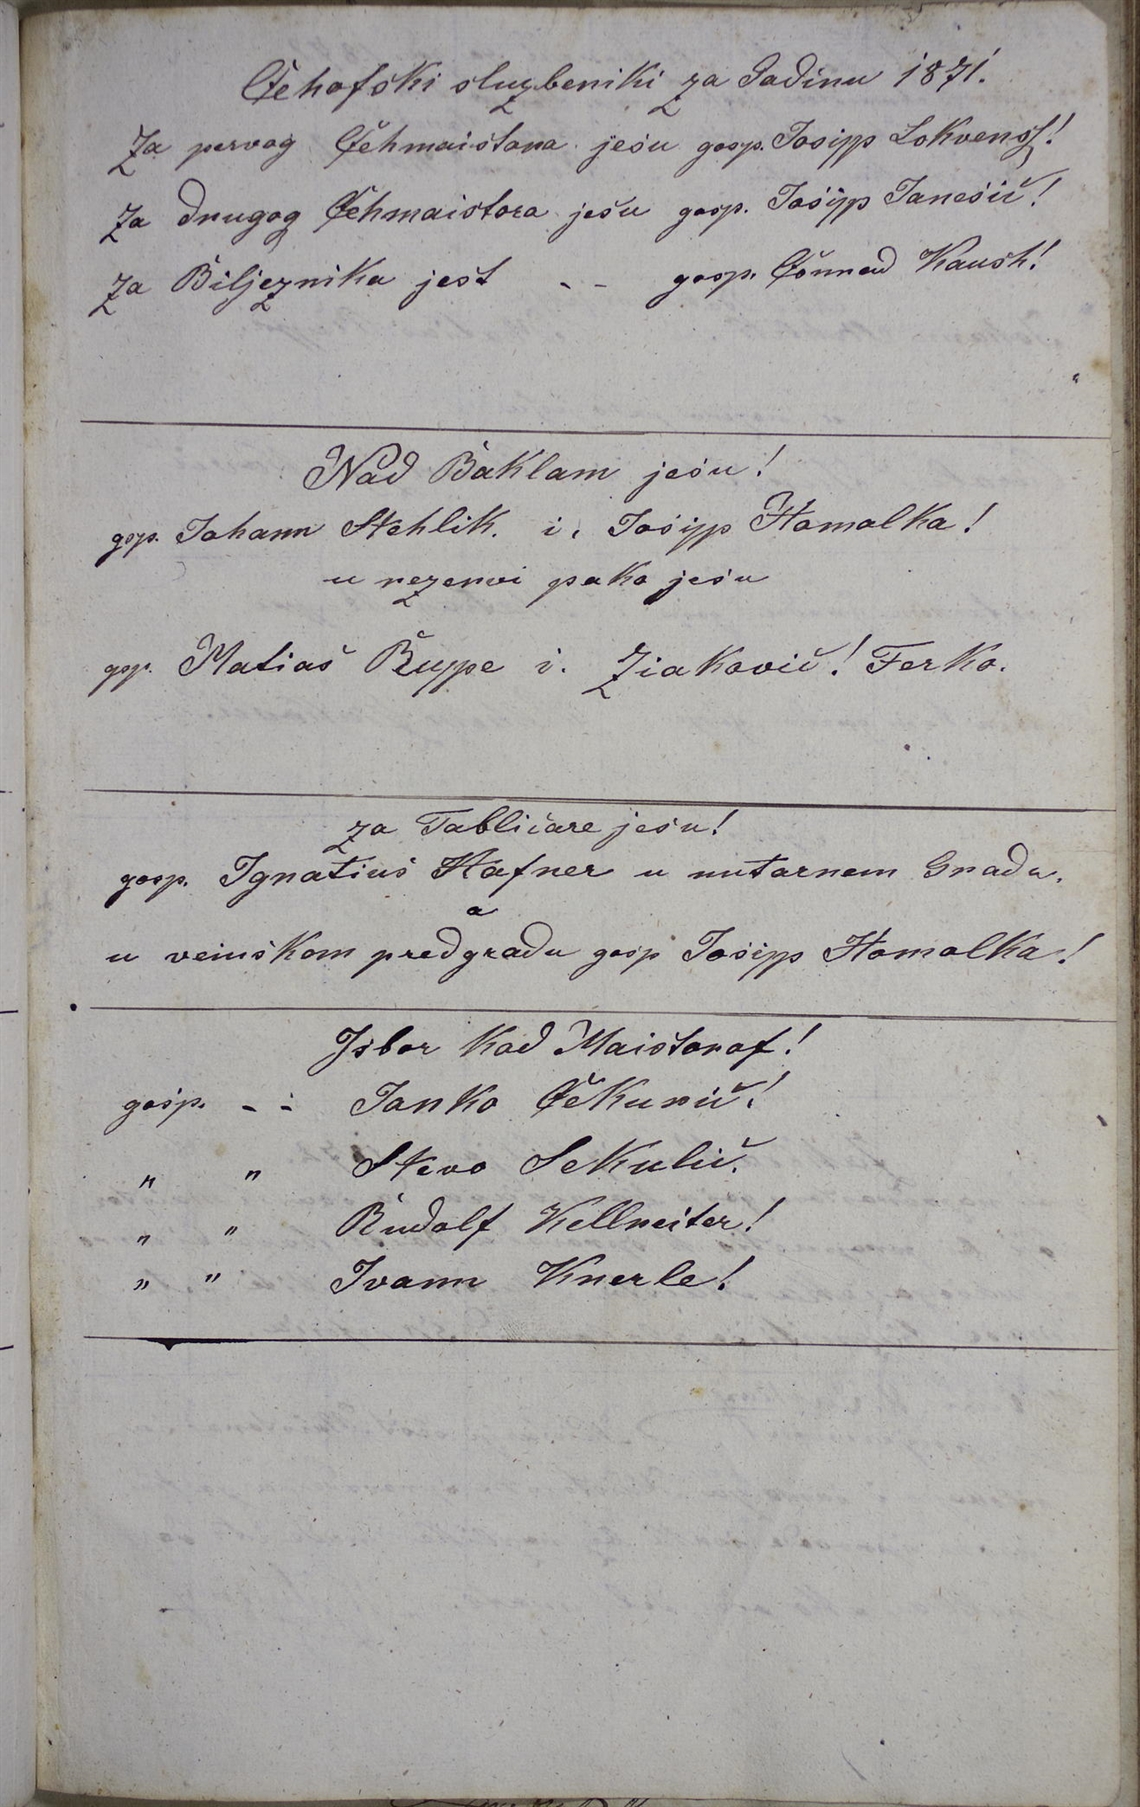 Čehofski sluzbeniki za Godinu 1871.
Za pervog Čehmaistora jesu gosp. Josipp Lokvens!
Za drugog Čehmaistora jesu gosp. Josipp Janesič!
Za Biljeznika jest - - gosp. Connad Kaush!
Nad Baklam jesu!
gosp. Johann Stehlik. i. Josipp Homolka!
u rezervi pako jesu
gsp. Matias Ruppe i. Ziakovič! Ferko.
za Tabličare jesu!
gosp. Ignatius Hafner u nutarnem Gradu.
a
u veinskom predgradu gosp Josipp Homolka!
Jsbor kod Maistorof!
gosp. - - Janko Čekunič!
" " Stevo Sekulič.
" " Rudolf Kellneiter!
" " Ivann Knerle!